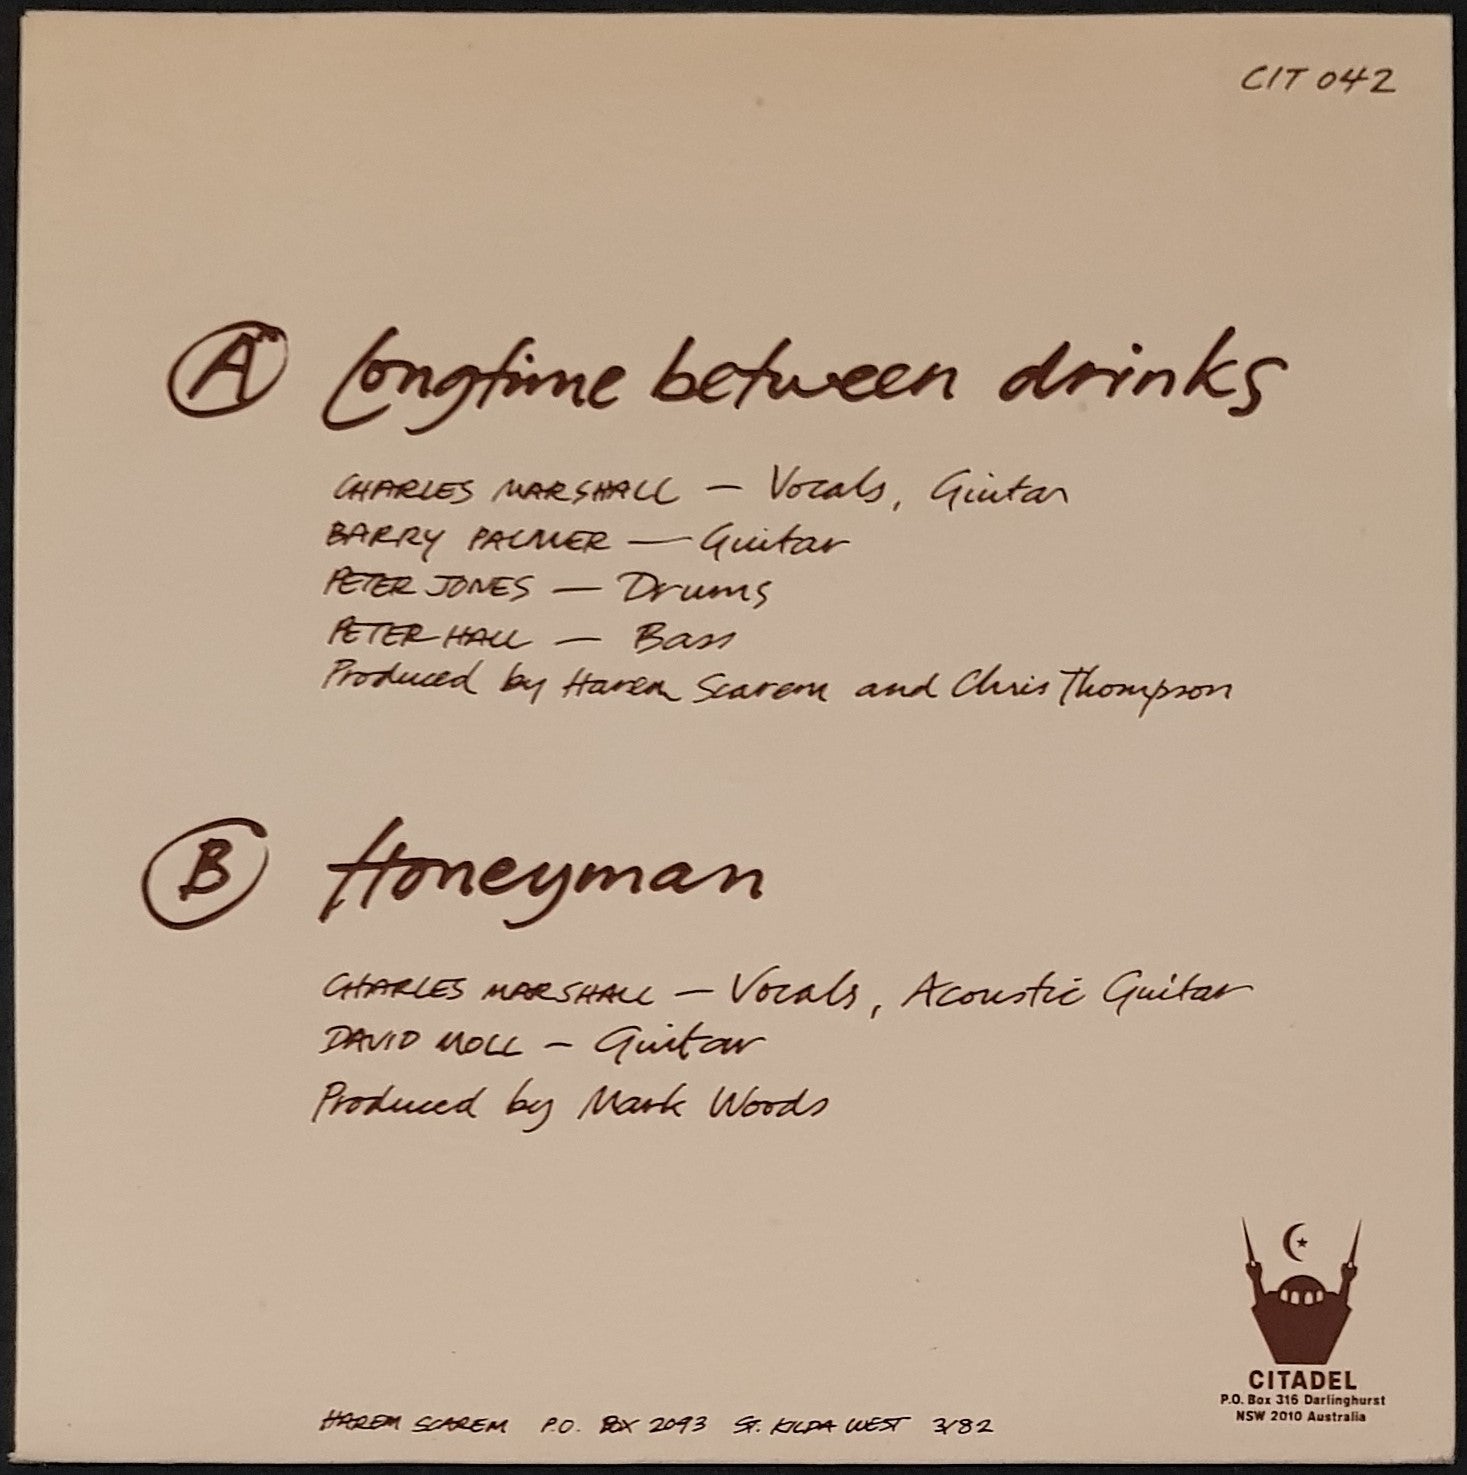 CIT 042
A Longtime between drinks
CHARLES MARSHALL — Vocals, Guitar
BARRY PALMER — Guitar
PETER JONES — Drums
PETER HALL — Bass
Produced by Harem Scarem and Chris Thompson
B Honeyman
CHARLES MARSHALL — Vocals, Acoustic Guitar
DAVID MOLL — Guitar
Produced by Mark Woods
CITADEL
P.O. Box 316 Darlinghurst
NSW 2010 Australia
HAREM SCAREM P.O. BOX 2093 ST. KILDA WEST 3182